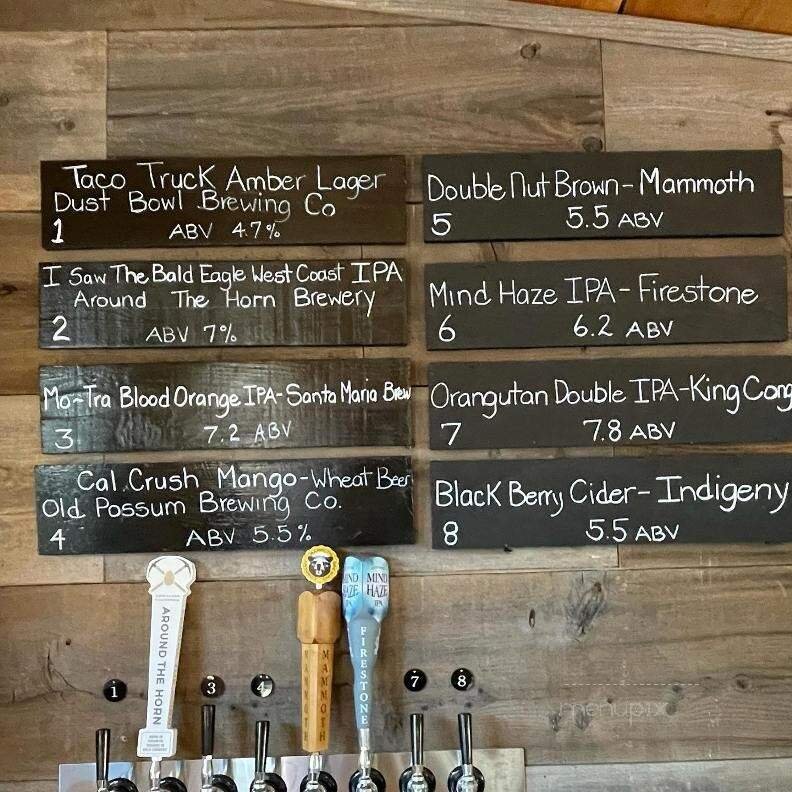 Taco Truck Amber Lager
Dust Bowl Brewing Co
1 ABV 4.7%
I Saw The Bald Eagle West Coast IPA
Around The Horn Brewery
2 ABV 7%
Mo-Tra Blood Orange IPA-Santa Maria Brew
3 7.2 ABV
Cal.Crush Mango-Wheat Beer
Old Possum Brewing Co.
4 ABV 5.5%
Double Nut Brown-Mammoth
5 5.5 ABV
Mind Haze IPA-Firestone
6 6.2 ABV
Orangutan Double IPA-King Cong
7 7.8 ABV
Black Berry Cider-Indigeny
8 5.5 ABV
AROUND THE HORN
MAMMOTH
MAMMOTH
MIND HAZE
IPA
MIND HAZE
IPA
FIRESTONE
1
3
4
7
8
menupix